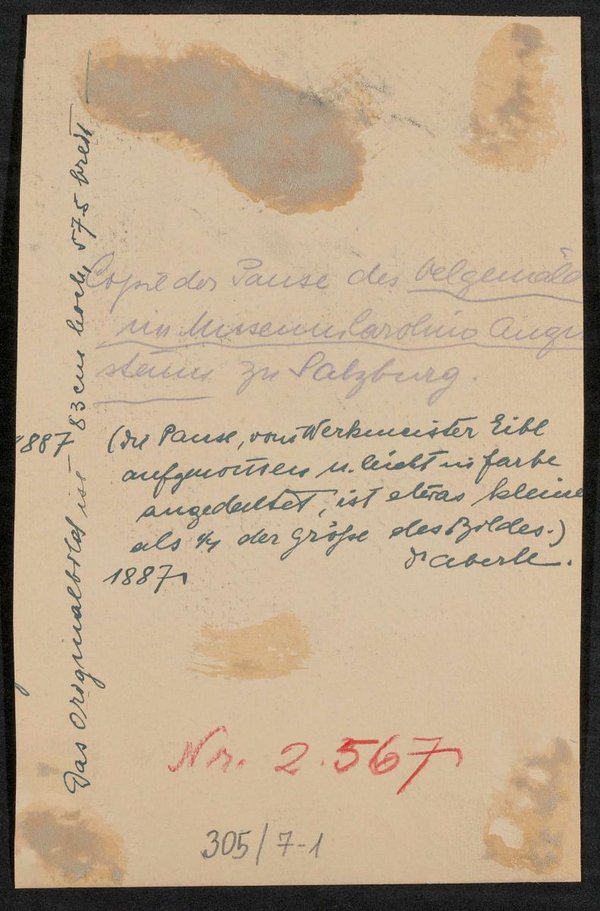 Copie der Pause des Oelgemäld
im Museum Carolino Augu
steum zu Salzburg.
1887
(die Pause, vom Werkmeister Eibl
aufgenommen u. leicht in Farbe
angedeutet, ist etwas kleine
als 4/4 der Größe des Bildes.)
Dr Aberle.
1887
Das Originalbild ist 83 cm hoch, 57.5 breit
Nr. 2.567
305/7-1